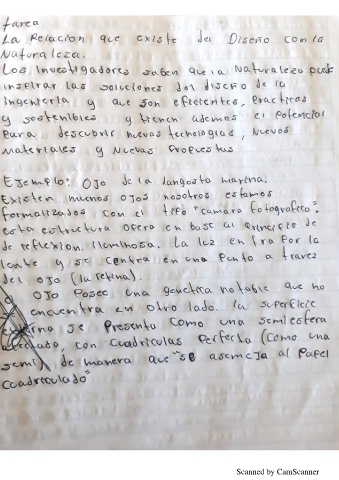 tarea
La Relacion que existe del Diseño con la
Naturaleza.
Los Investigadores saben que la Naturaleza puede
inspirar las soluciones del diseño de la
Ingenieria y que son eficientes, Practicas
y sostenibles y tienen ademas el Potencial
Para descubrir nuevas tecnologias, Nuevos
materiales y Nuevas Propuestas
Ejemplo: Ojo de la langosta marina.
Existen muchos Ojos nosotros estamos
formalizados con el tipo "camara fotografica".
esta estructura opera en base al Principio de
de reflexion lluminosa. La luz entra Por la
lente y se centra en una Punto a travez
del ojo (la retina).
OJO Posee una genetica notable que no
encuentra en otro lado. la superficie
se Presenta como una semi esfera
con cuadriculas Perfecta (como una
semi) de manera que "se asemeja al Papel
cuadriculado"
Scanned by CamScanner